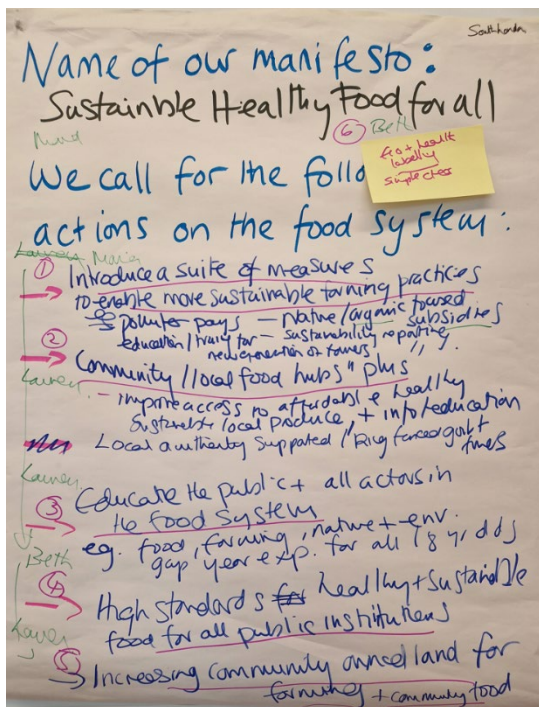 South London
Name of our manifesto:
Sustainble Healthy Food for all
⑥ Beth
eco + health
labelling
simple clear
We call for the follo
actions on the food system:
Lauren Maria
① Introduce a suite of measures
to enable more sustainable farming practicies
eg polluter pays - Native/organic focused subsidies
education/training for - sustainability reporting
new generation of farmers " "
② Community/local food hubs "plus
Lauren - improve access to affordable & healthy
sustainable local produce, + info/education
Local authority supported / Ring fenced govt funds
Lauren
③ Educate the public + all actors in
the food system
eg. food, farming, nature + env.
gap year exp. for all 18 yr olds
Beth
④ High standards for healthy + sustainable
food for all public institutions
Lauren
⑤ Increasing community owned land for
farming + community food